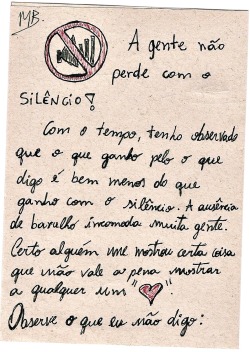 MB.
A gente não
perde com o
SILÊNCIO!
Com o tempo, tenho observado
que o que ganho pelo o que
digo é bem menos do que
ganho com o silêncio. A ausência
de barulho incomoda muita gente.
Certo alguém me mostrou certa coisa
que não vale a pena mostrar
a qualquer um "♥"
Observe o que eu não digo: